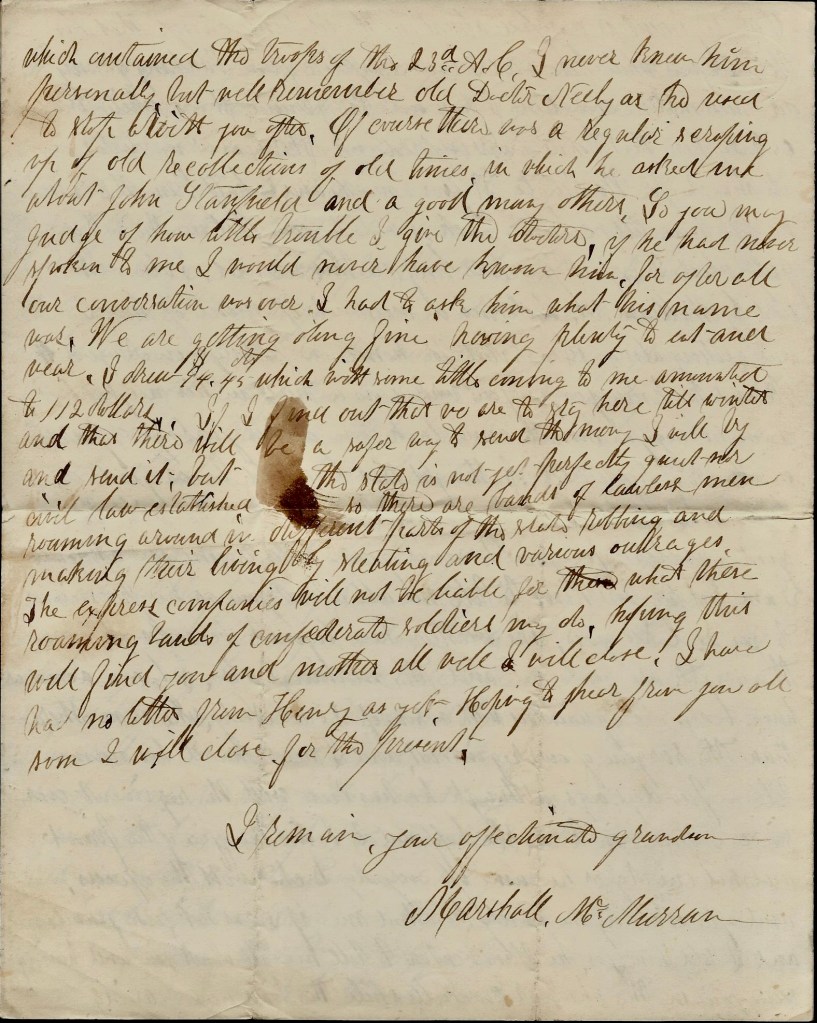 which contained the troops of the 23d A.C. I never knew him
personally, but well remember old Doctor Neely as he used
to stop with you often. Of course there was a regular scraping
up of old recollections of old times, in which he asked me
about John Stanfield and a good many others. So you may
judge of how little trouble I give the doctors, if he had never
spoken to me I would never have known him, for after all
our conversation was over. I had to ask him what his name
was. We are getting along fine having plenty to eat and
wear. I drew which with some little coming to me amounted
to 112 dollars. If I find out that we are to stay here till winter
and that there will be a safer way to send the money I will try
and send it, but the state is not yet perfectly quiet nor
civil law established so there are bands of lawless men
roaming around in different parts of the state robbing and
making their living by stealing and various outrages.
The express companies will not be liable for what these
roaming bands of confederate soldiers may do, hoping this
will find you and mother all well I will close. I have
had no letter from Henry as yet Hoping to hear from you all
soon I will close for the present.
I remain, your affectionate grandson
Marshall, Mc Murran